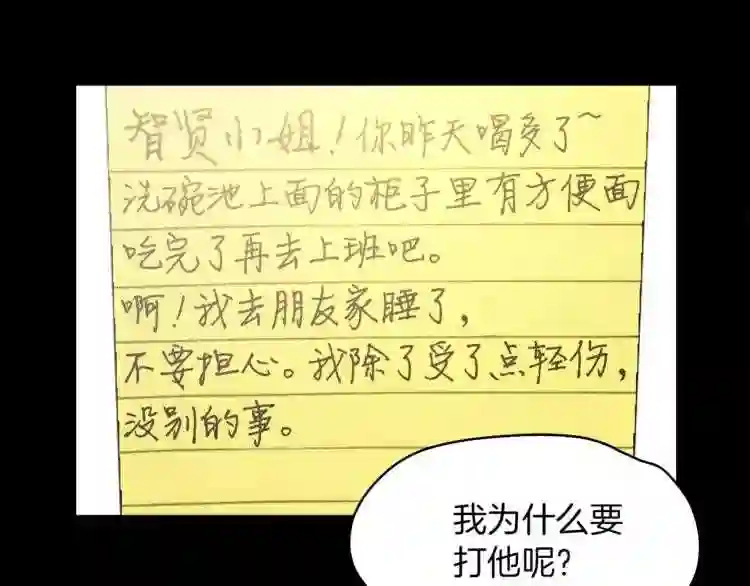 智贤小姐！你昨天喝多了~
洗碗池上面的柜子里有方便面
吃完了再去上班吧。
啊！我去朋友家睡了，
不要担心。我除了受了点轻伤，
没别的事。
我为什么要
打他呢？